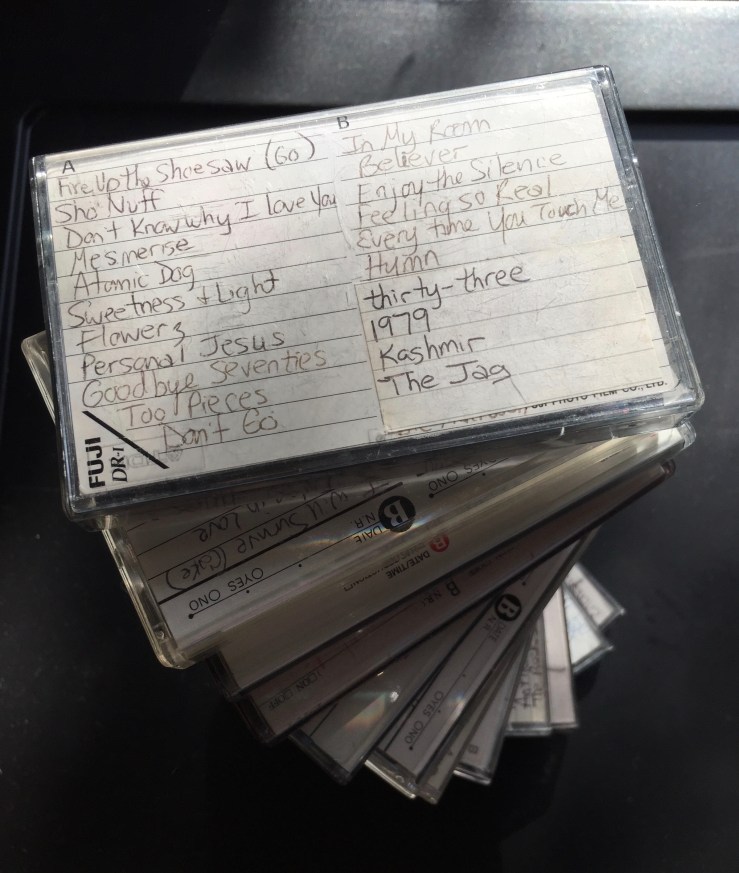 A
Fire Up the Shoesaw (LP)
Sho' Nuff
Don't Know why I Love You
Mesmerise
Atomic Dog
Sweetness + Light
Flowers
Personal Jesus
Goodbye Seventies
Too Pieces
Don't Go
FUJI
DR-I
B
In My Room
Believer
Enjoy the Silence
Feeling so Real
Every time You Touch Me
Hymn
thirty-three
1979
Kashmir
The Jag
PHOTO FILM CO., LTD.
OYES ONO
B DATE
N.R.
in Love
I Will Survive (Cake)
OYES ONO
B DATE/TIME
B N.R.
B DATE
N.R.
OYES ONO